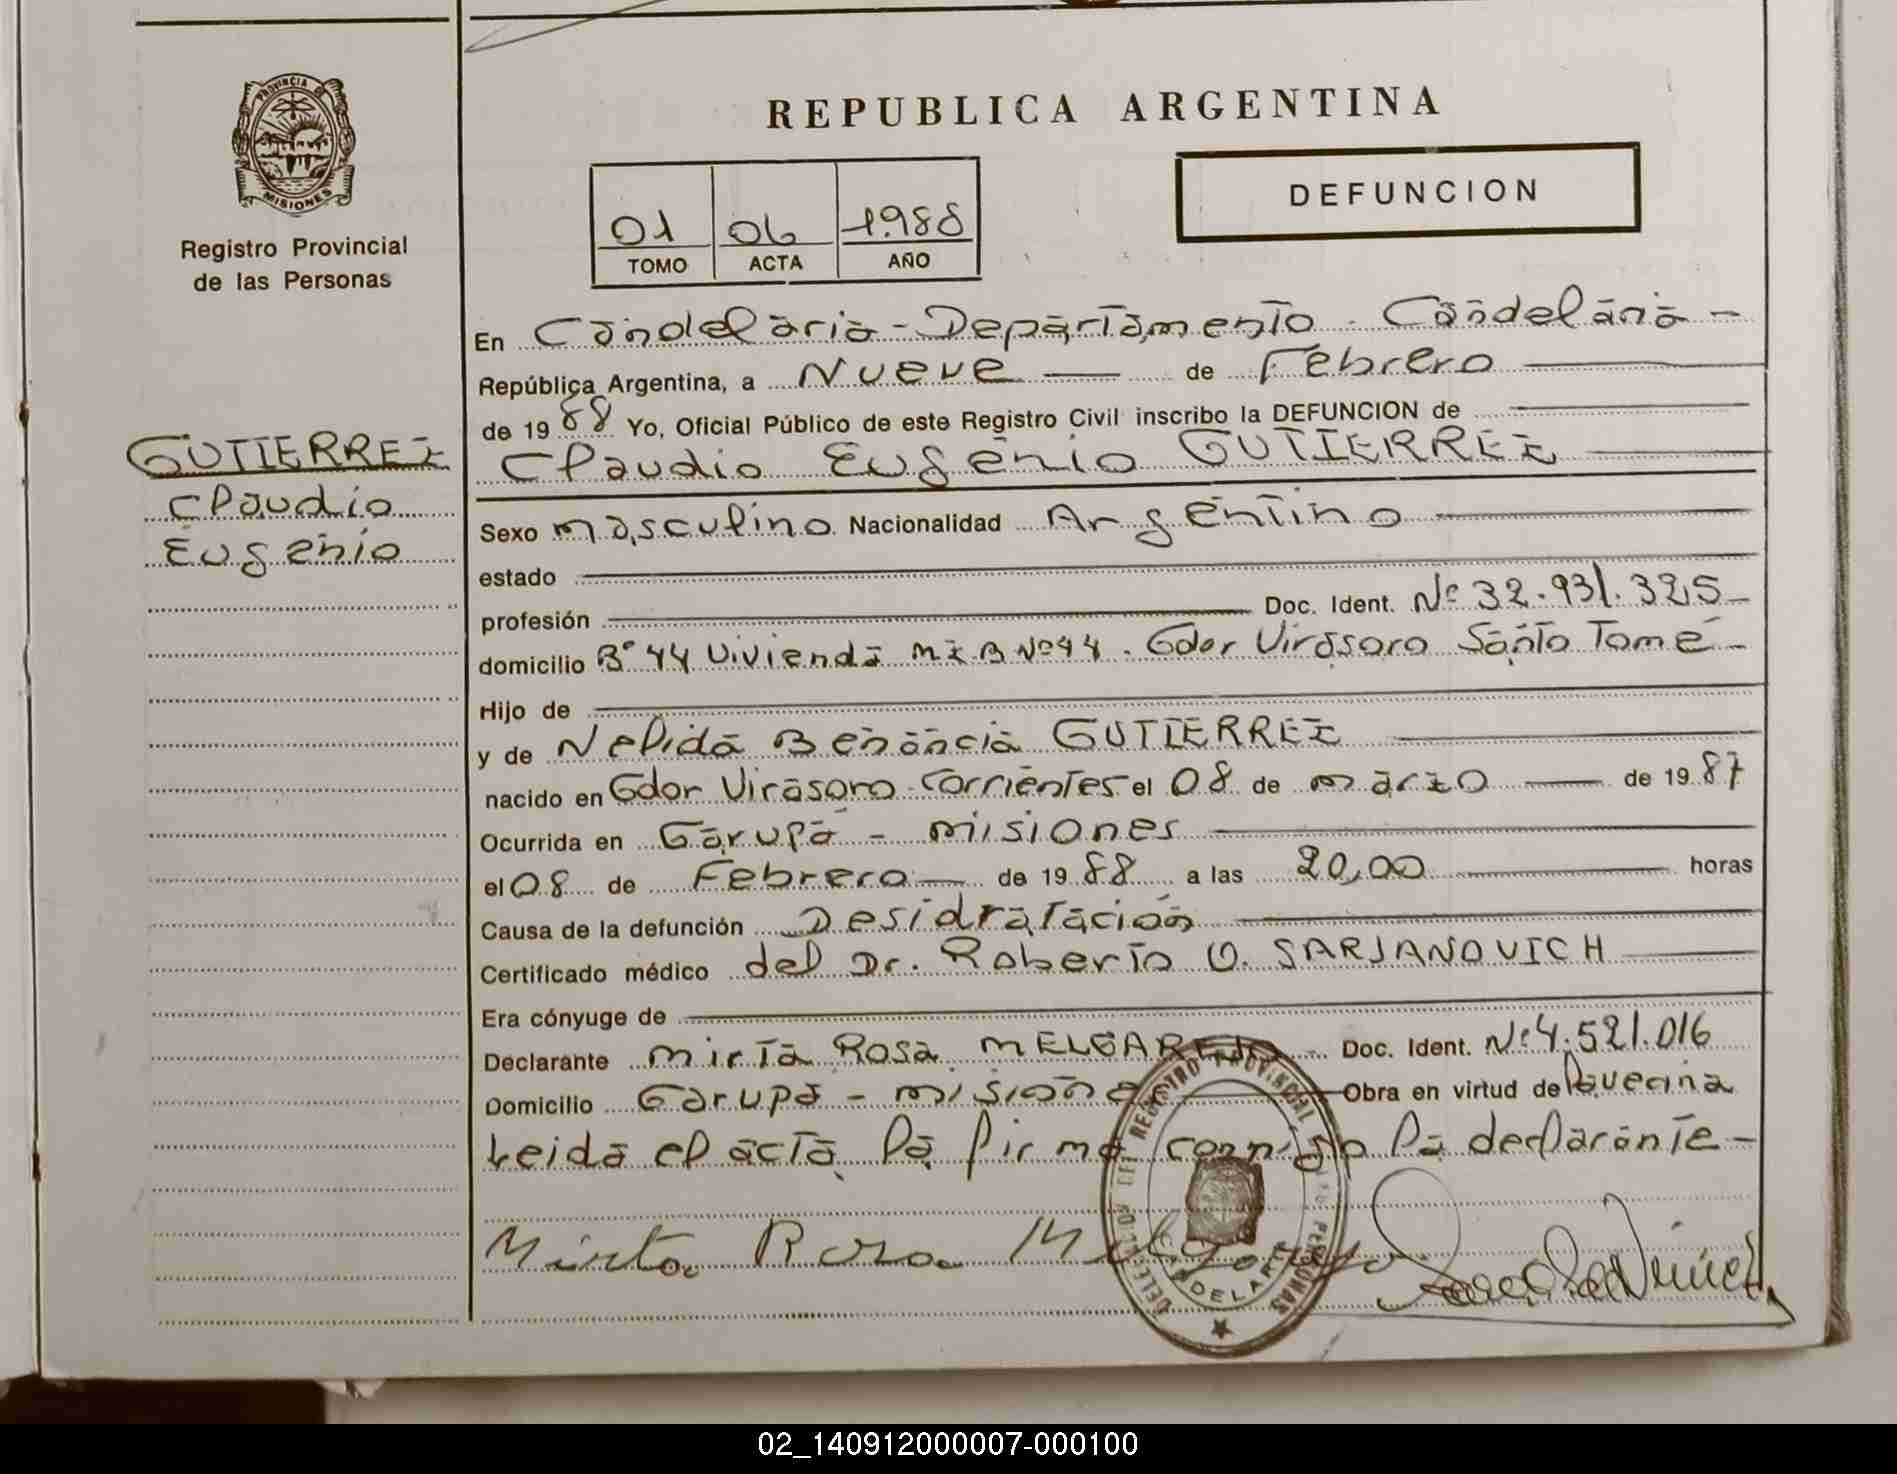 PROVINCIA DE
MISIONES
Registro Provincial
de las Personas
GUTIERREZ
Claudio
Eugenio
REPUBLICA ARGENTINA
01 06 1.988
TOMO ACTA AÑO
DEFUNCION
En Candelaria - Departamento Candelaria -
República Argentina, a Nueve de Febrero
de 19 88 Yo, Oficial Público de este Registro Civil inscribo la DEFUNCION de
Claudio Eugenio GUTIERREZ
Sexo masculino Nacionalidad Argentino
estado
profesión Doc. Ident. Nº 32.931.325
domicilio Bº 44 Vivienda MZ B Nº 44. Gdor Virasoro Santo Tomé -
Hijo de
y de Nelida Benancia GUTIERREZ
nacido en Gdor Virasoro - Corrientes el 08 de marzo de 19 87
Ocurrida en Garupá - misiones
el 08 de Febrero de 19 88 a las 20,00 horas
Causa de la defunción Desidratación
Certificado médico del Dr. Roberto O. SARJANOVICH
Era cónyuge de
Declarante mirta Rosa MELGAREJO Doc. Ident. Nº 4.521.016
Domicilio Garupá - misiones Obra en virtud de
Leida el acta la firma conmigo la declarante -
Mirta Rosa Melgarejo
DELEGACION DEL REGISTRO PROVINCIAL DE LAS PERSONAS
CANDELARIA
02_140912000007-000100